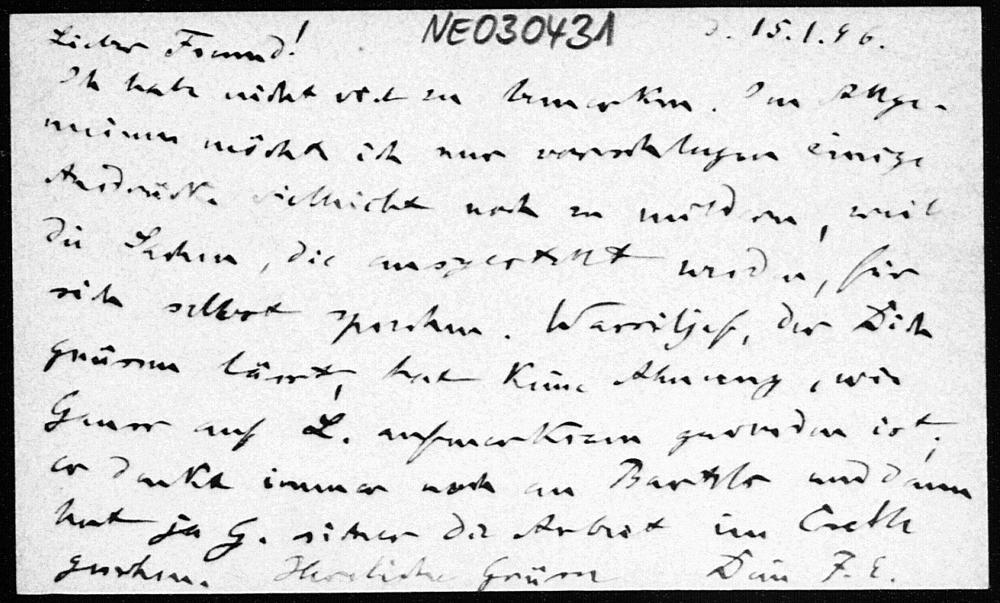 NE030431
15.1.96.
Lieber Freund!
Ich habe nicht viel zu bemerken. Im Allge-
meinen möchte ich nur vorschlagen einige
Ausdrücke vielleicht noch zu mildern, weil
die Sachen, die ausgestellt werden, für
sich selbst sprechen. Wassiljef, der Dich
grüssen lässt, hat keine Ahnung, wie
Gauss auf L. aufmerksam geworden ist;
er denkt immer noch an Bartels und dann
hat ja G. sicher die Arbeit im Crelle
gesehen. Herzliche Grüsse Dein F. E.